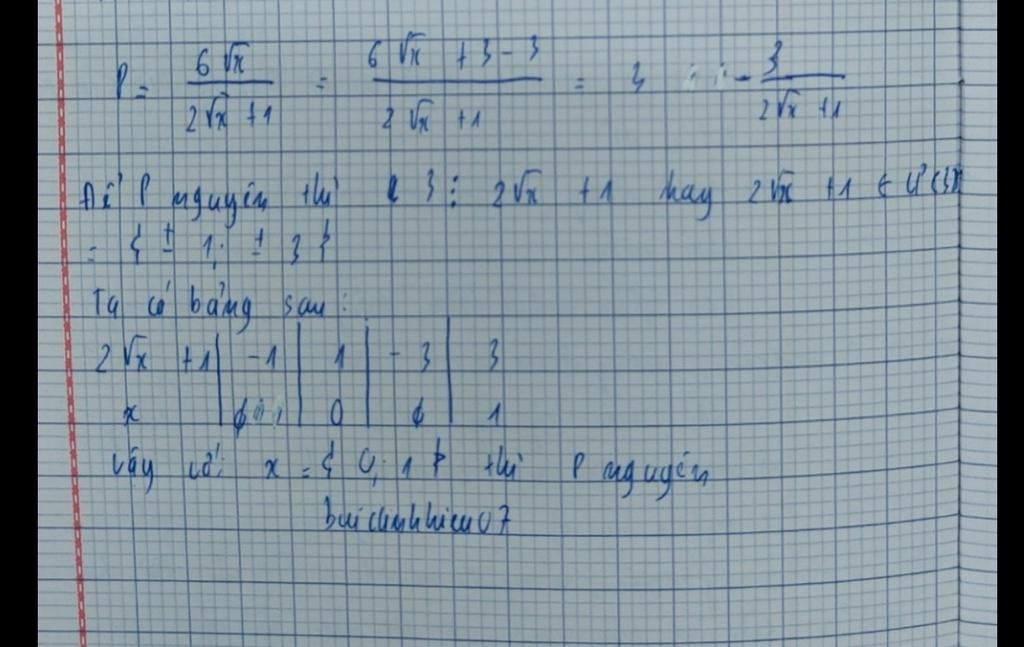 P = 6√x / (2√x + 1) = (6√x + 3 - 3) / (2√x + 1) = 3 - 3 / (2√x + 1)
Để P nguyên thì 3 ⋮ 2√x + 1 hay 2√x + 1 ∈ Ư(3)
= { ± 1; ± 3 }
Ta có bảng sau:
2√x + 1 | -1 | 1 | -3 | 3
x | ϕ | 0 | ϕ | 1
Vậy với x = { 0; 1 } thì P nguyên